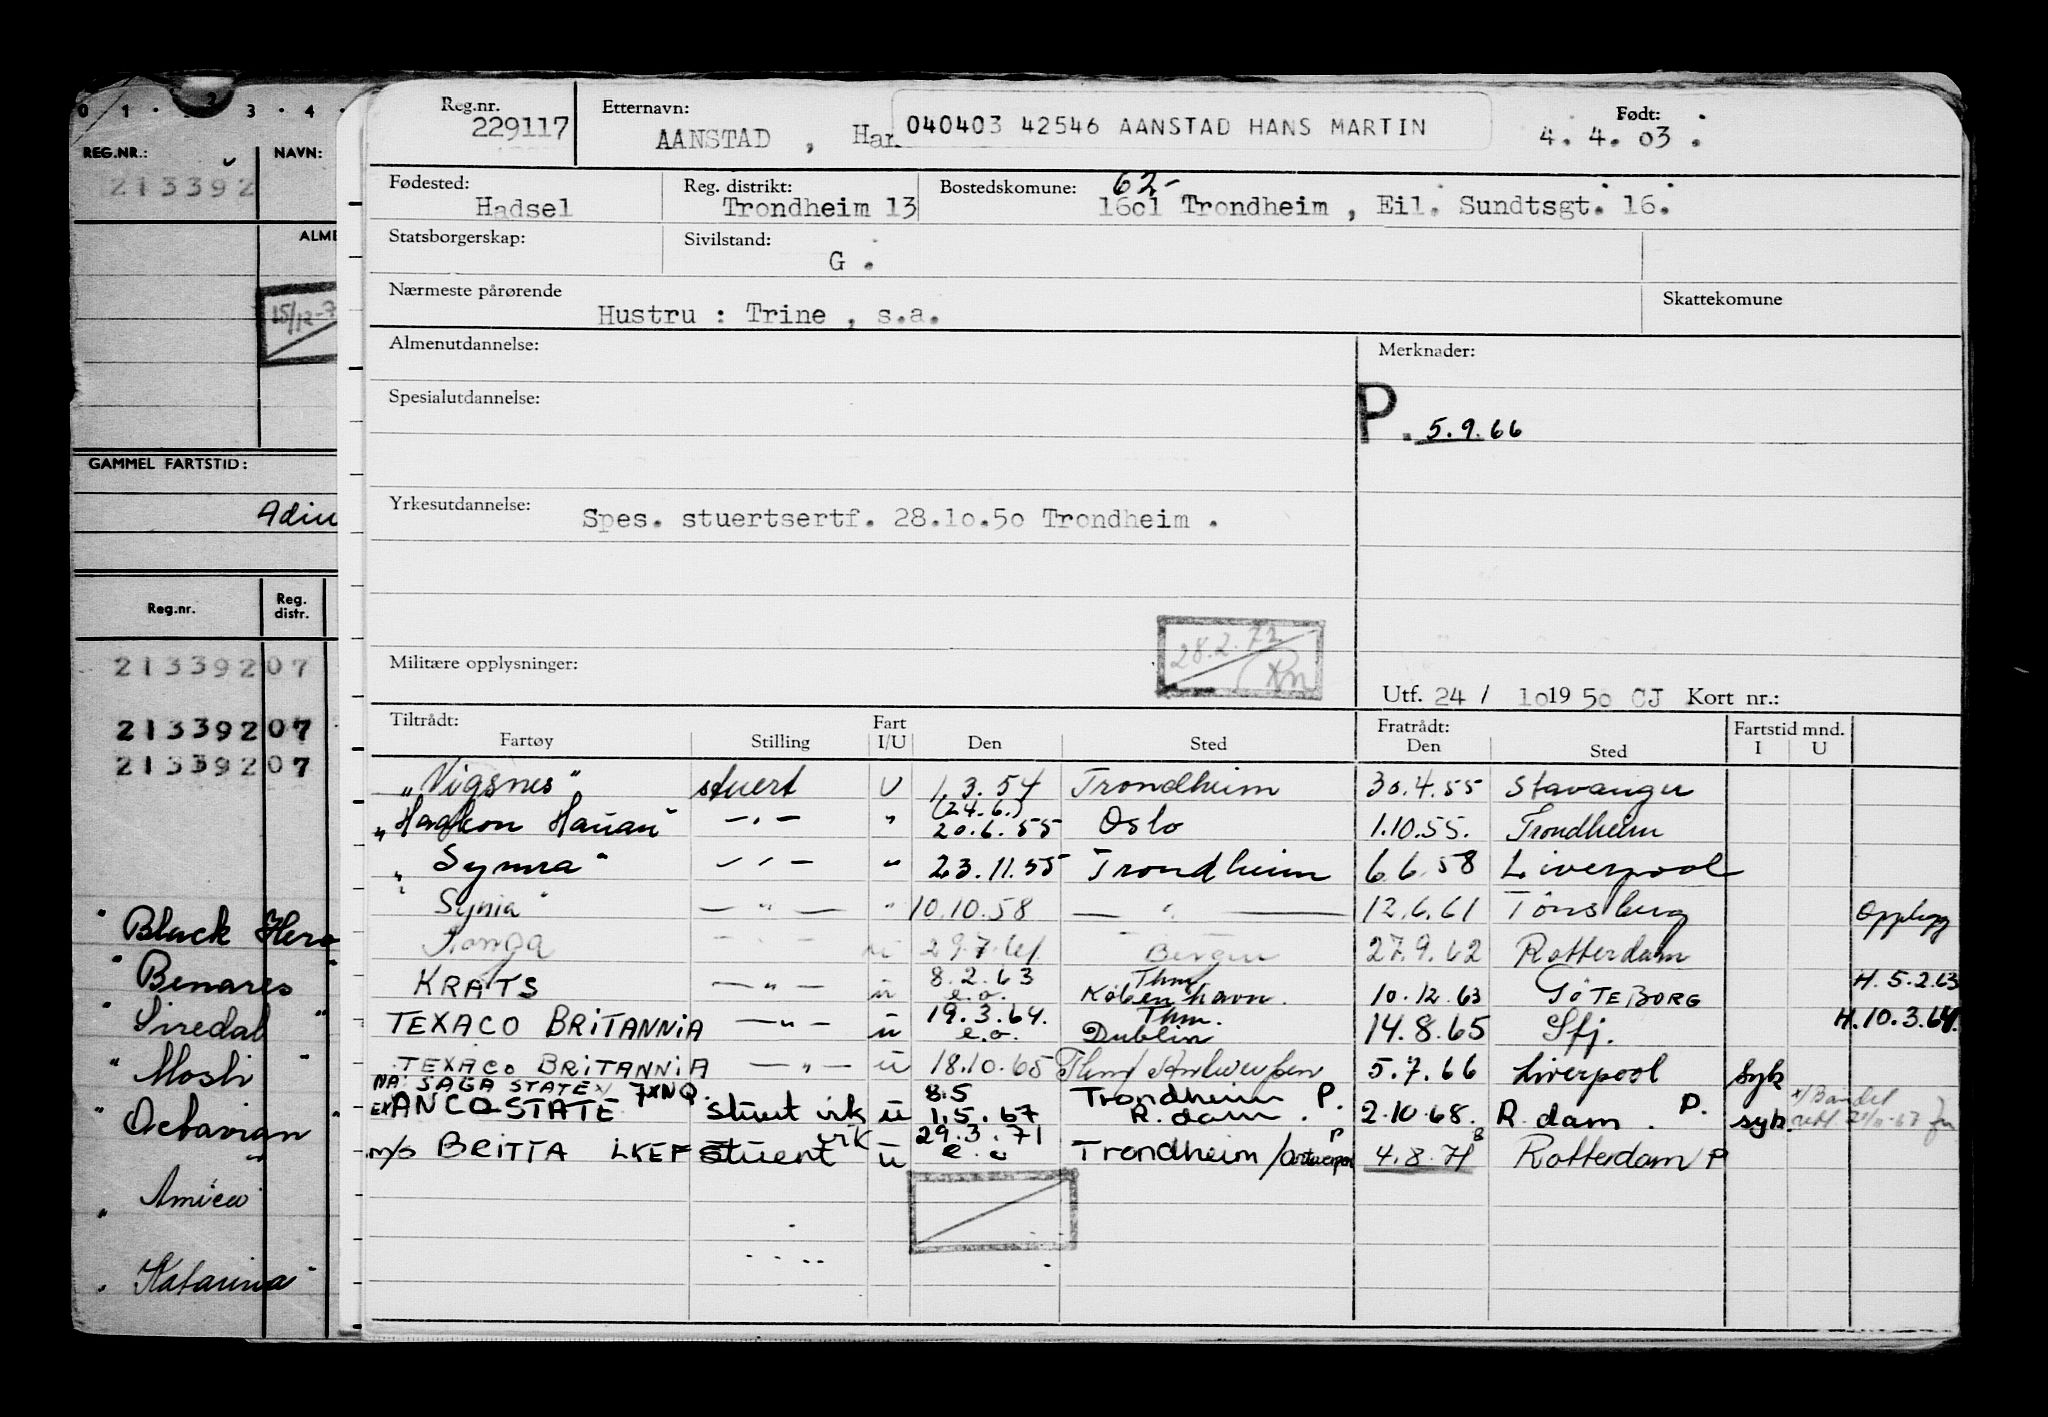 0 1 · 2 3 · 4 ·
REG.NR.: NAVN:
213392
ALME
15/12-7
GAMMEL FARTSTID:
Reg.nr. Reg. distr.
213392 07
213392 07
213392 07
" Black Hero
" Benares "
" Siredal "
" Mosli "
" Octavian "
" Amica "
" Katarina "
Reg.nr. 229117 Etternavn: AANSTAD , Han 040403 42546 AANSTAD HANS MARTIN Født: 4. 4. 03 .
Fødested: Hadsel Reg. distrikt: Trondheim 13 Bostedskomune: 62- 1601 Trondheim , Eil. Sundtsgt. 16.
Statsborgerskap: Sivilstand: G .
Nærmeste pårørende Hustru : Trine , s.a. Skattekomune
Almenutdannelse: Merknader:
Spesialutdannelse:
P. 5.9.66
Yrkesutdannelse: Spes. stuertsertf. 28.10.50 Trondheim .
28.2.72
Militære opplysninger:
Utf. 24 / 10 1950 CJ Kort nr.:
Tiltrådt: Fart Fratrådt: Fartstid mnd.
Fartøy Stilling I/U Den Sted Den Sted I U
"Vigsnes" stuert U 1.3.54 Trondheim 30.4.55 Stavanger
(24.6.)
"Haakon Hauan" —"— " 20.6.55 Oslo 1.10.55. Trondheim
" Symra " —"— " 23.11.55 Trondheim 6.6.58 Liverpool
" Synia " —"— " 10.10.58 —"— 12.6.61 Tønsberg Opplegg
Tonga —"— u 29.7.61 Bergen 27.9.62 Rotterdam
8.2.63 Thm H. 5.2.63
KRATS —"— u e.o. København. 10.12.63 GÖTEBORG
19.3.64. Thm. H. 10.3.64.
TEXACO BRITANNIA —"— u e.o. Dublin 14.8.65 Sfj.
TEXACO BRITANNIA —"— u 18.10.65 Thm/Antwerpen 5.7.66 Liverpool Syk
NA: SAGA STATE x) 7XNQ. 8.5 Trondheim P. x) Bandel
EX ANCO STATE stuert vik u 1.5.67 R.dam . 2.10.68. R.dam . P. syk.
29.3.71 P
m/s BRITTA LKEF stuert vik u e.o Trondheim / Antwerpen 4.8.71 Rotterdam P